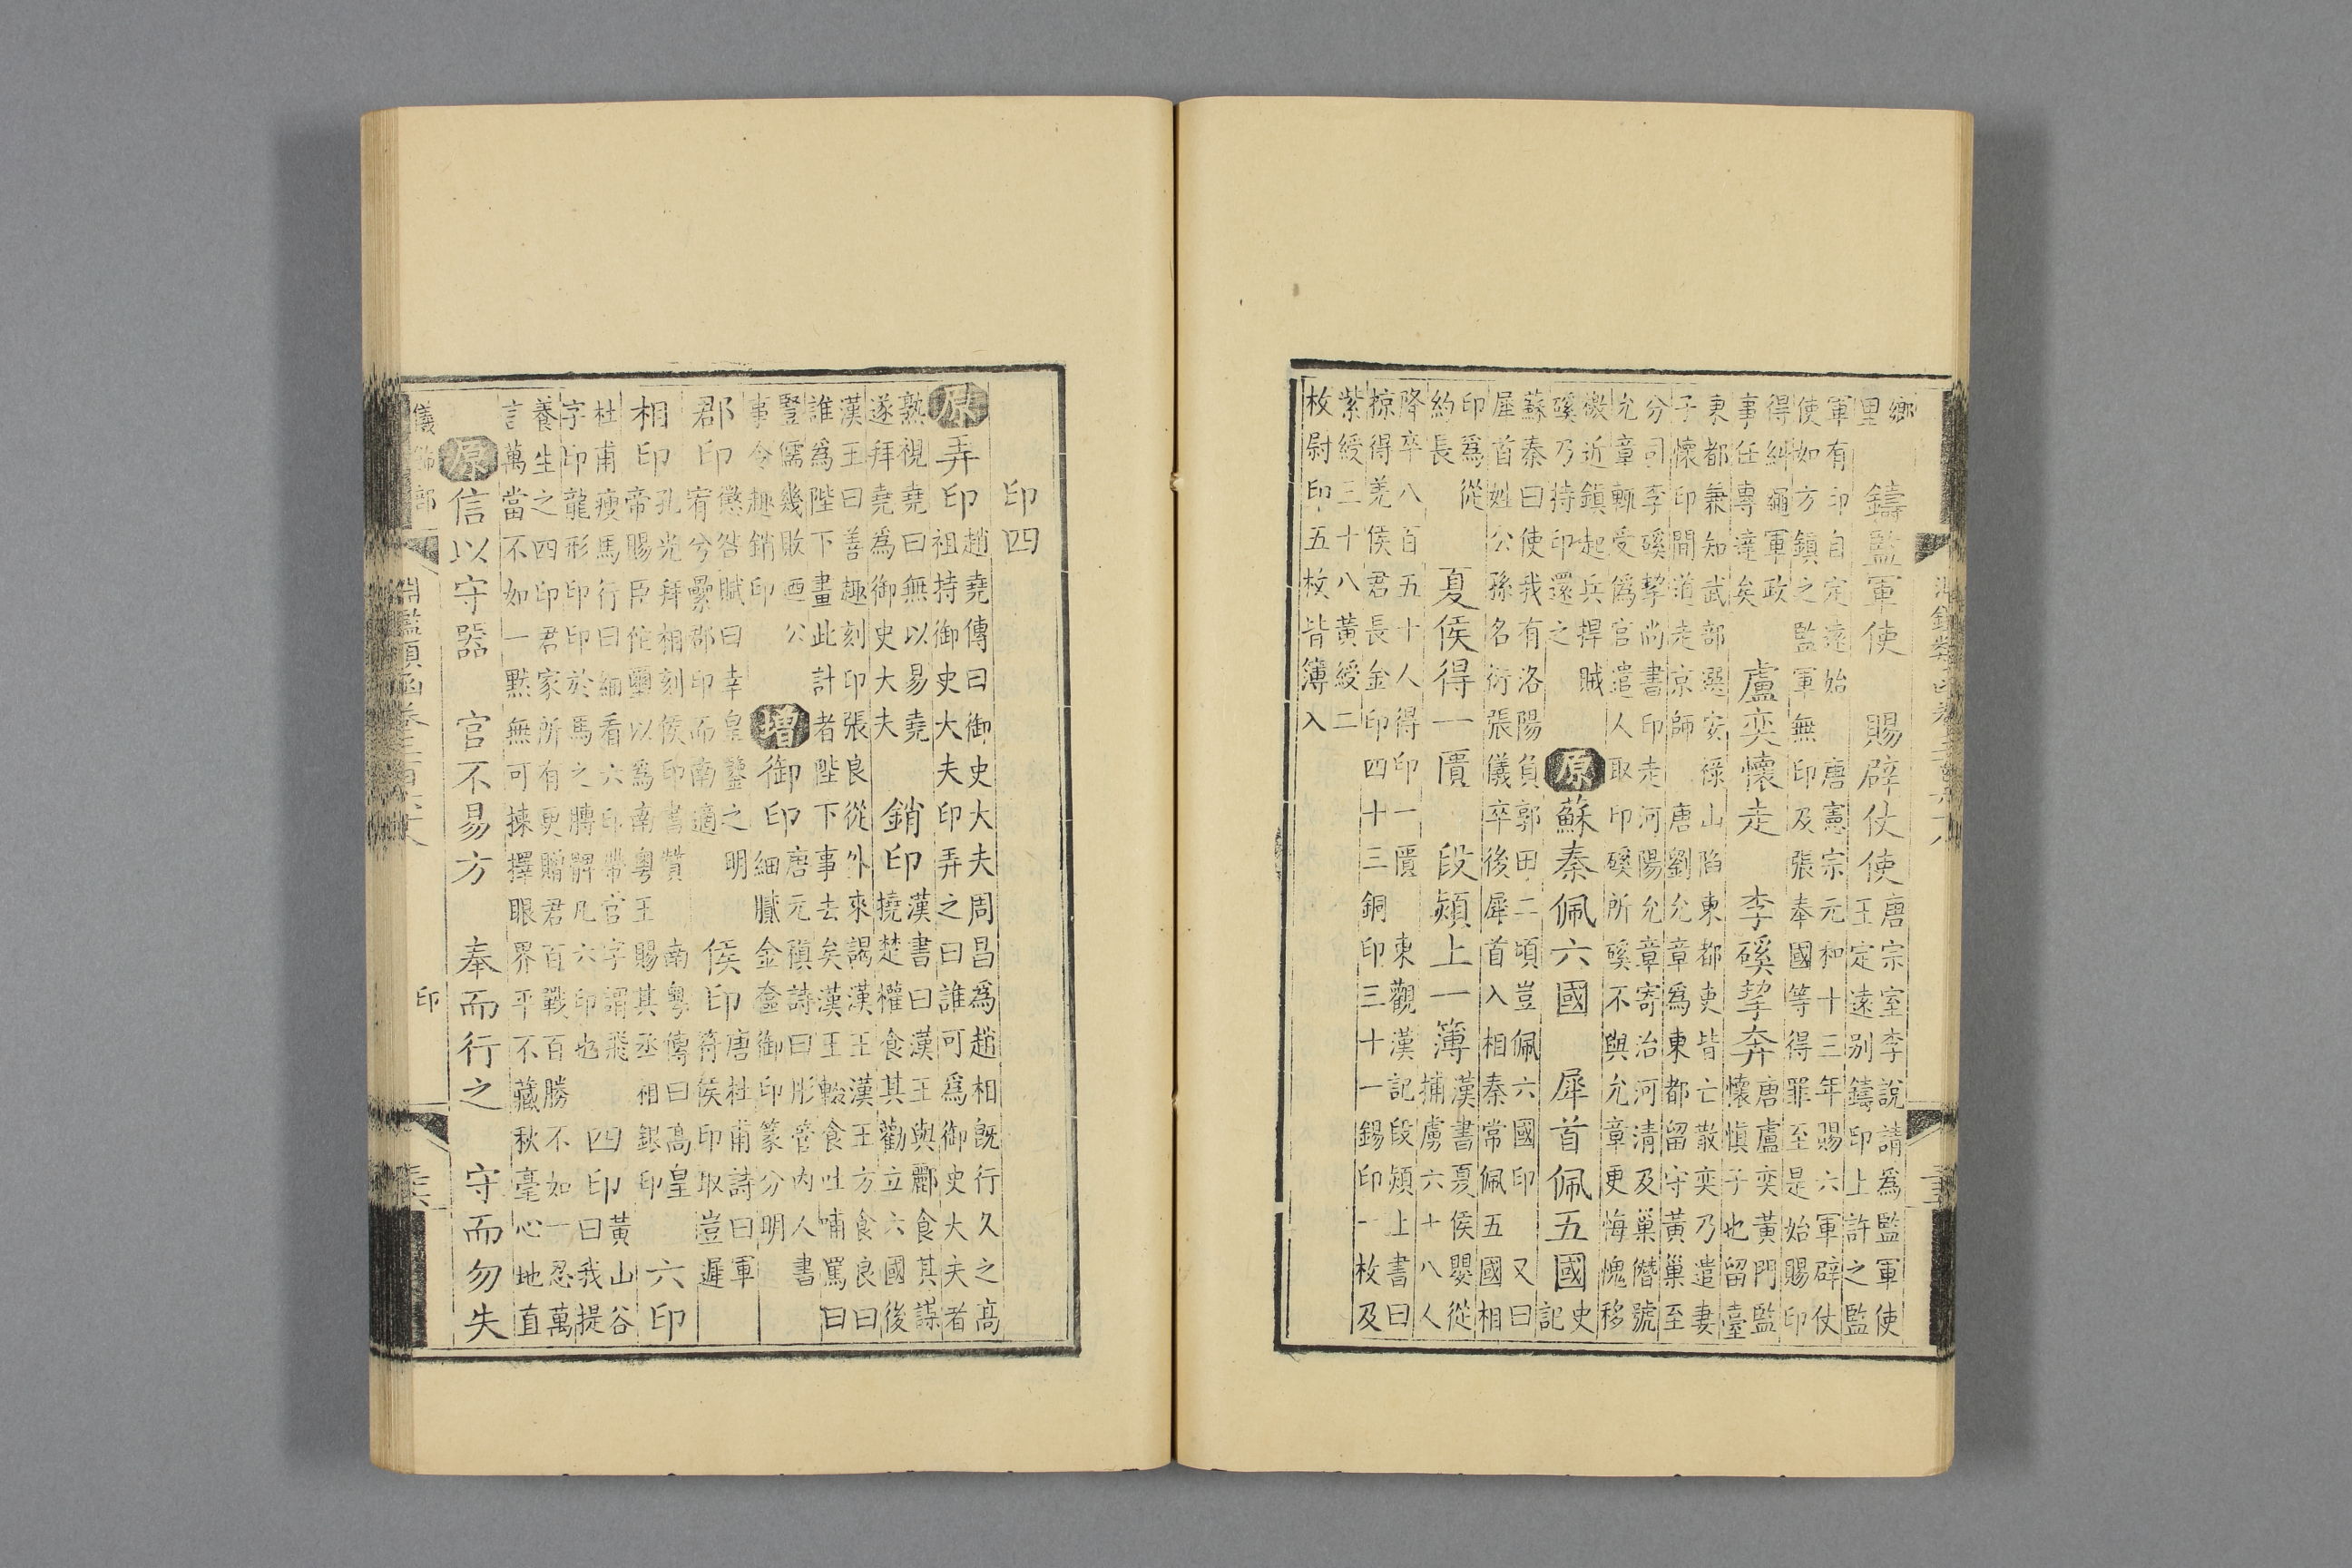 鄉里鑄監軍使　賜辟仗使唐宗室李說請為監軍使王定遠別鑄印上許之監
軍有印自定遠始　唐憲宗元和十三年賜六軍辟仗使如方鎮之監軍無印及張奉國等得罪至是始賜印
得糾繩軍政事任專達矣　盧奕懷走　李磎挈奔唐盧奕黃門監懷慎子也留臺
東都兼知武部選安祿山陷東都吏皆亡散奕乃遣妻子懷印間道走京師　唐劉允章為東都留守黃巢至
分司李磎挈尚書印走河陽允章寄治河清及巢僭號允章輒受偽官遣人取印磎所磎不與允章更悔愧移
檄近鎮起兵捍賊磎乃持印還之　原蘇秦佩六國　犀首佩五國史記
蘇秦曰使我有洛陽負郭田二頃豈佩六國印　又曰犀首姓公孫名衍張儀卒後犀首入相秦常佩五國相
印為從約長　夏侯得一匱　段熲上一簿漢書夏侯嬰從捕虜六十八人
降卒八百五十人得印一匱　東觀漢記段熲上書曰掠得羌侯君長金印四十三銅印三十一錫印一枚及
紫綬三十八黃綬二枚尉印五枚皆簿入
印四
原弄印趙堯傳曰御史大夫周昌為趙相既行久之高祖持御史大夫印弄之曰誰可為御史大夫者
熟視堯曰無以易堯遂拜堯為御史大夫　銷印漢書曰漢王與酈食其謀撓楚權食其勸立六國後
漢王曰善趣刻印張良從外來謁漢王漢王方食良曰誰為陛下畫此計者陛下事去矣漢王輟食吐哺罵曰
豎儒幾敗迺公事令趣銷印　增御印唐元稹詩曰彤管內人書細膩金奩御印篆分明
郡印懲咎賦曰幸皇鑒之明宥兮纍郡印而南適　侯印唐杜甫詩曰軍符侯印取豈遲
相印孔光拜相刻侯印書贊　南粵傳曰高皇帝賜臣佗璽以為南粵王賜其丞相銀印　六印
杜甫瘦馬行曰細看六印帶官字謂飛字印龍形印印於馬之髆髀凡六印也　四印黃山谷曰我提
養生之四印君家所有更贈君百戰百勝不如一忍萬言萬當不如一默無可揀擇眼界平不藏秋毫心地直
原信以守器　官不易方　奉而行之　守而勿失
儀飾部　印